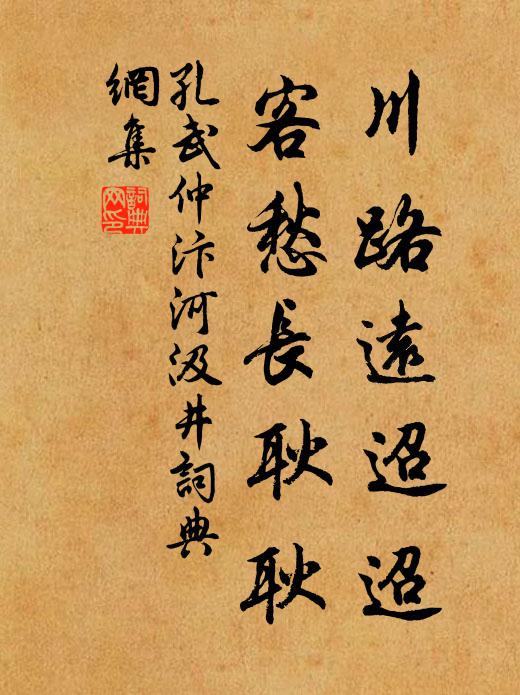 川路遠迢迢
客愁長耿耿
孔武仲汴河汲井詞典
網集
詞典網印